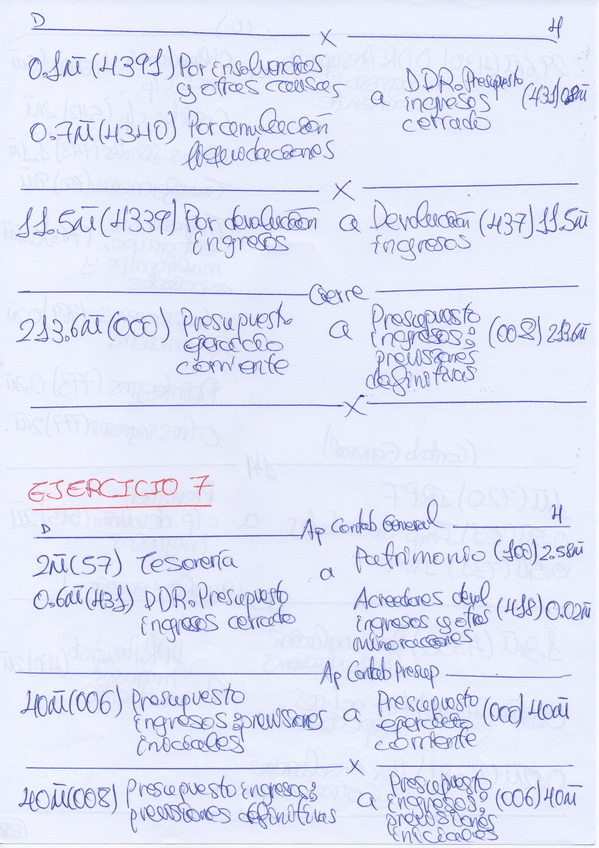 D H
X
0.1M (4391) Por insolvencias
y otras causas
a DDR. Presupuesto
ingresos
cerrado
(431) 0.8M
0.7M (4340) Por anulación
liquidaciones
X
11.5M (4339) Por devolución
ingresos
a Devolución (437) 11.5M
ingresos
Cierre
213.6M (000) Presupuesto
ejercicio
corriente
a Presupuesto
ingresos;
previsiones
definitivas
(008) 213.6M
X
EJERCICIO 7
D Ap Contab General H
2M (57) Tesorería
a Patrimonio (100) 2.58M
0.6M (431) DDR. Presupuesto
ingresos cerrado
Acreedores devol
ingresos y otras
minoraciones
(418) 0.02M
Ap Contab Presup
40M (006) Presupuesto
ingresos; previsiones
iniciales
a Presupuesto
ejercicio
corriente
(000) 40M
X
40M (008) Presupuesto ingresos;
previsiones definitivas
a Presupuesto
ingresos;
previsiones
iniciales
(006) 40M